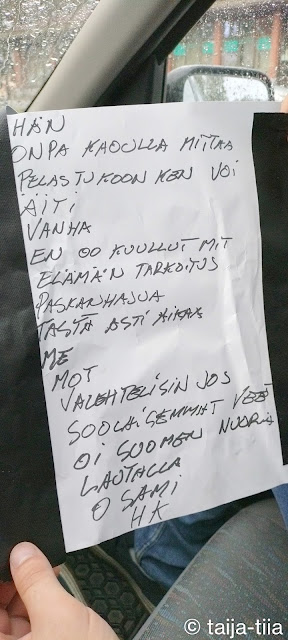 HÄN
ONPA KADULLA MITTAA
PELASTUKOON KEN VOI
ÄITI
VANHA
EN OO KUULLUT MIT
ELÄMÄN TARKOITUS
PASKANHAJUA
TÄSTÄ ASTI AIKAA
ME
MOT
VALEHTELISIN JOS
SOOLAISEMMAT VEET
OI SUOMEN NUORIA
LAUTALLA
O SAMI
HK
© taija-tiia